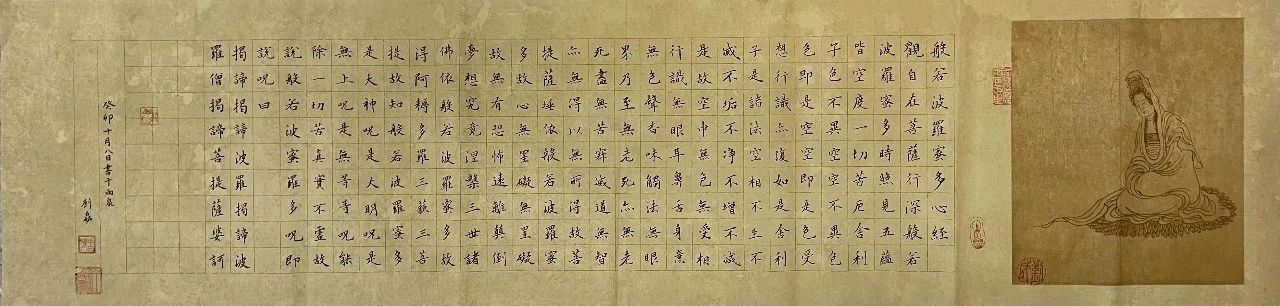 般若波羅蜜多心經
觀自在菩薩行深般若
波羅蜜多時照見五蘊
皆空度一切苦厄舍利
子色不異空空不異色
色即是空空即是色受
想行識亦復如是舍利
子是諸法空相不生不
滅不垢不淨不增不減
是故空中無色無受相
行識無眼耳鼻舌身意
無色聲香味觸法無眼
界乃至無老死亦無老
死盡無苦寂滅道無智
亦無得以無所得故菩
提薩埵依般若波羅蜜
多故心無罣礙無罣礙
故無有恐怖遠離顛倒
夢想究竟涅槃三世諸
佛依般若波羅蜜多故
得阿耨多羅三藐三菩
提故知般若波羅蜜多
是大神咒是大明咒是
無上咒是無等等咒能
除一切苦真實不虛故
說般若波蜜羅多咒即
說咒曰
揭諦揭諦波羅揭諦波
羅僧揭諦菩提薩婆訶
癸卯十月八日書于雨
劉